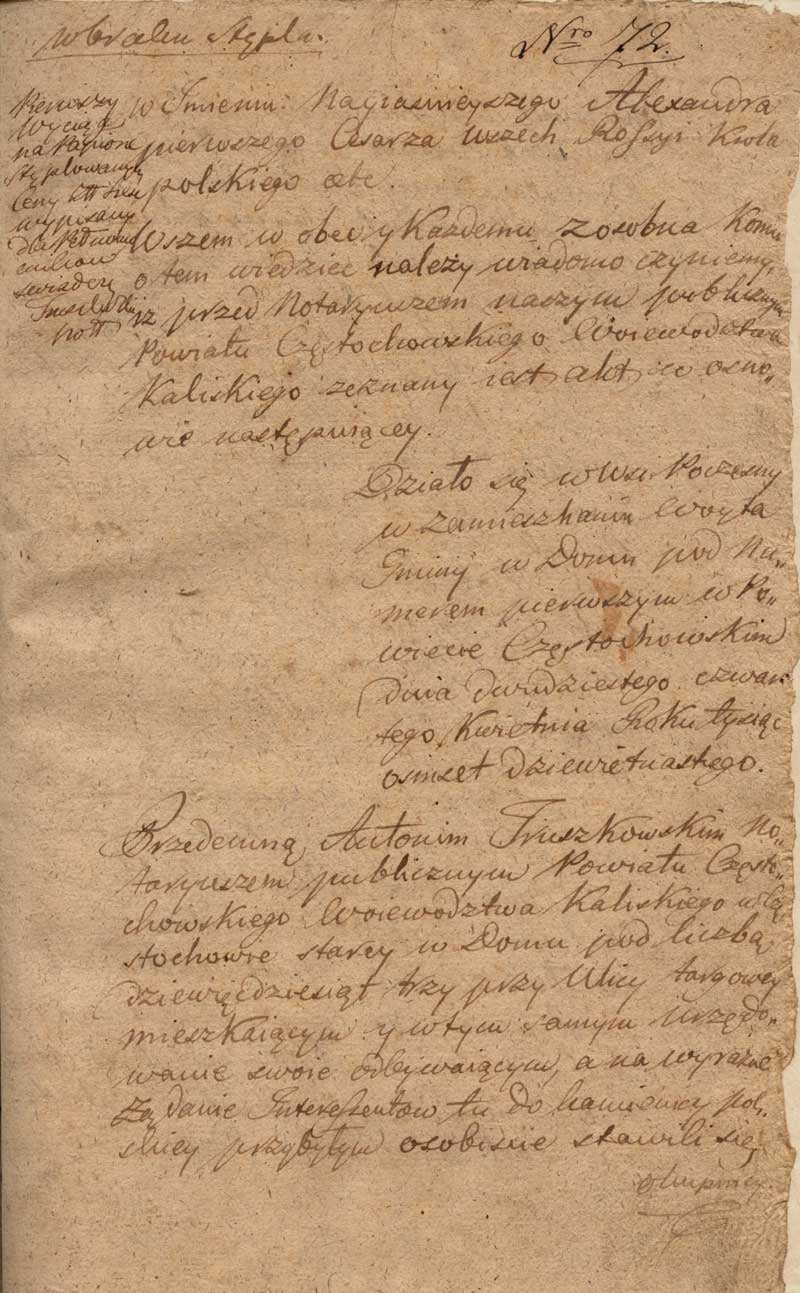 w braku Stępla.
Nro 72.
Pierwszy
Wyciąg
na papierze
stęplowanym
Ceny
wypisany
dla
świadczy
Truszkowski
Nott
w Imieniu Nayiasnieyszego Alexandra
pierwszego Cesarza wszech Rossyi Krola
polskiego &c &c.
Wszem w obec y Każdemu zosobna Komu
o tem wiedziec należy wiadomo czyniemy,
iz przed Notaryuszem naszym publicznym
Powiatu Częstochowskiego Woiewodztwa
Kaliskiego zeznany iest akt w osno„
wie następuiący.
Działo się w Wsi Poczesny
w zamieszkaniu Woyta
Gminy w Domu pod Nu„
merem pierwszym w Po„
wiecie Częstochowskim
dnia dwudziestego czwar
tego Kwietnia Roku tysiąc
osmset dziewiętnastego.
Przedemną Antonim Truszkowskim No„
taryuszem publicznym Powiatu Często„
chowskiego Woiewodztwa Kaliskiego w Czę
stochowie starey w Domu pod liczbą
dziewięcdziesiąt trzy przy Ulicy targowey
mieszkaiącym y w tym samym urzędo„
wanie swoie odbywaiącym, a na wyrazne
Ządanie Interessentow tu do kamienicy pol„
skiey przybyłym osobiscie stawili się,